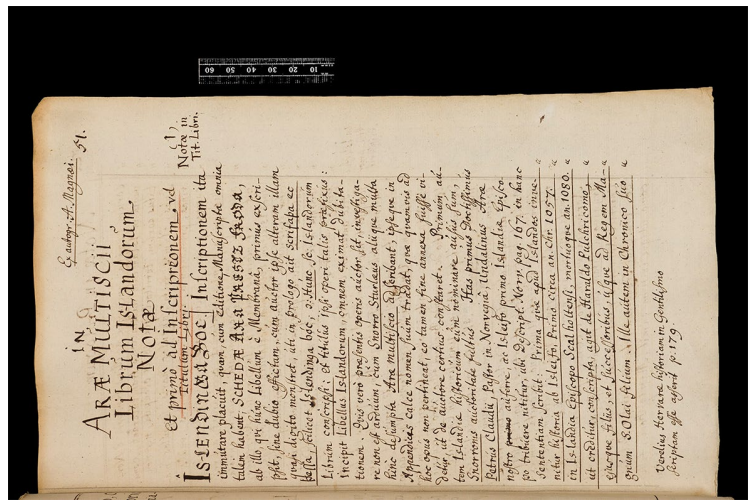 Ex autogr. A. Magnæi.
51.
IN
ARÆ MULTISCII
Librum Islandorum.
Notæ
et primò ad Inscriptionem vel
Titulum Libri
Notæ in
Tit. Libri.
Inscriptionem ita
immutare placuit, quam cum Editione Manuscripta omnia
talem habent, SCHEDÆ ARA PRESTZ FRODA,
ab illo, qui hunc Libellum è Membrana, primus exscri-
psit, sine dubio effictam, cum auctor ipse alteram illam
quasi digito monstret, uti in prologo ait scrifaþa ec
þessa, scilicet Islendinga boc, d. Hunc de Islandorum
Librum conscripsi: et titulus ipsi operi talis præfixus:
Incipit Libellus Islandorum, omnem eximat dubita-
tionem. Qvis verò præsentis operis auctor sit, investiga-
re non est arduum, cum Snorro Sturlæus aliique multa
hinc desumpta Aræ multiscio adscribant, ipseque in
Appendicis calce nomen suum tradat, qvæ qvamvis ad
hoc opus non pertineat, ei tamen fine annexa fuisse vi-
detur, ut de auctore certius constaret. Primum au-
tem Islandiæ historicum eum nominare ausus sum,
Snorronis auctoritate fultus. Has primus Doctissimus
Petrus Claudii, Pastor in Norvegia, Undalinus Aræ
nostro auferre, ac Isleifo primo Islandiæ Episco-
po tribuere nititur, ubi Descript. Norv. pag. 167. in hanc
sententiam scribit: Prima sive apud Islandos inve-
nitur historia ab Isleifo Primo circa an. Chr. 1057.
in Islandia Episcopo Scalholtensi, mortuoque an. 1080.
ut creditur, conscripta, agit de Haraldo Pulchricomo,
ejusque filiis, et successoribus, usque ad Regem Ma-
gnum S. Olai filium. Ille autem in Chronico suo
Verelius Hervaræ historiam in Gentilismo
scriptam esse asserit p. 179.
60 50 40 30 20 10